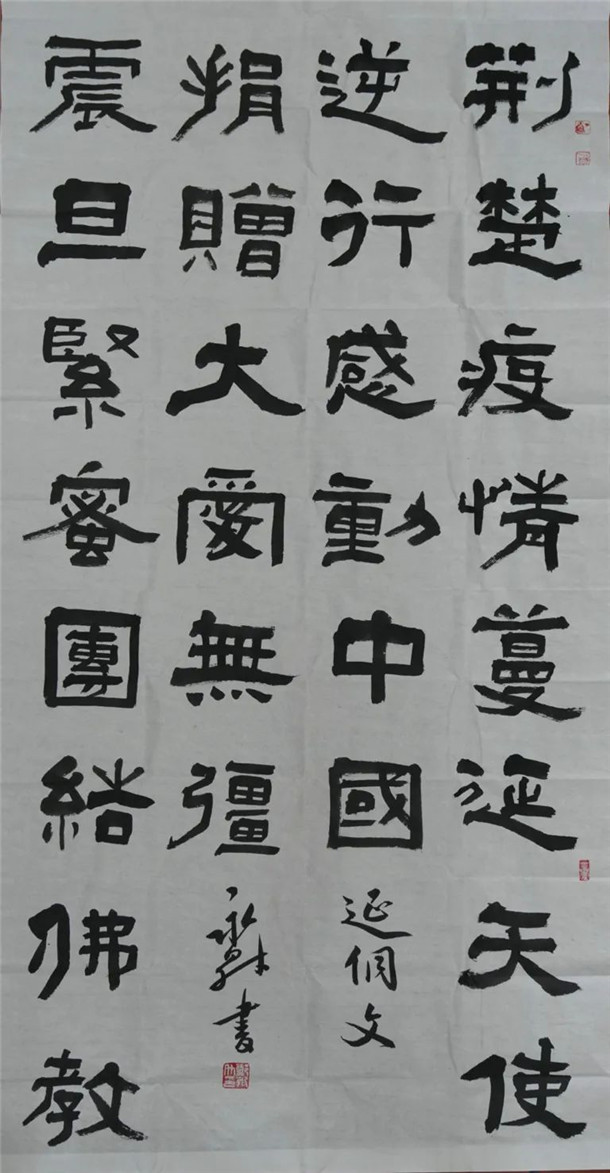 荆楚疫情蔓延天使
逆行感動中國
延文
震旦緊蜜團結佛教
捐贈大愛無疆
書